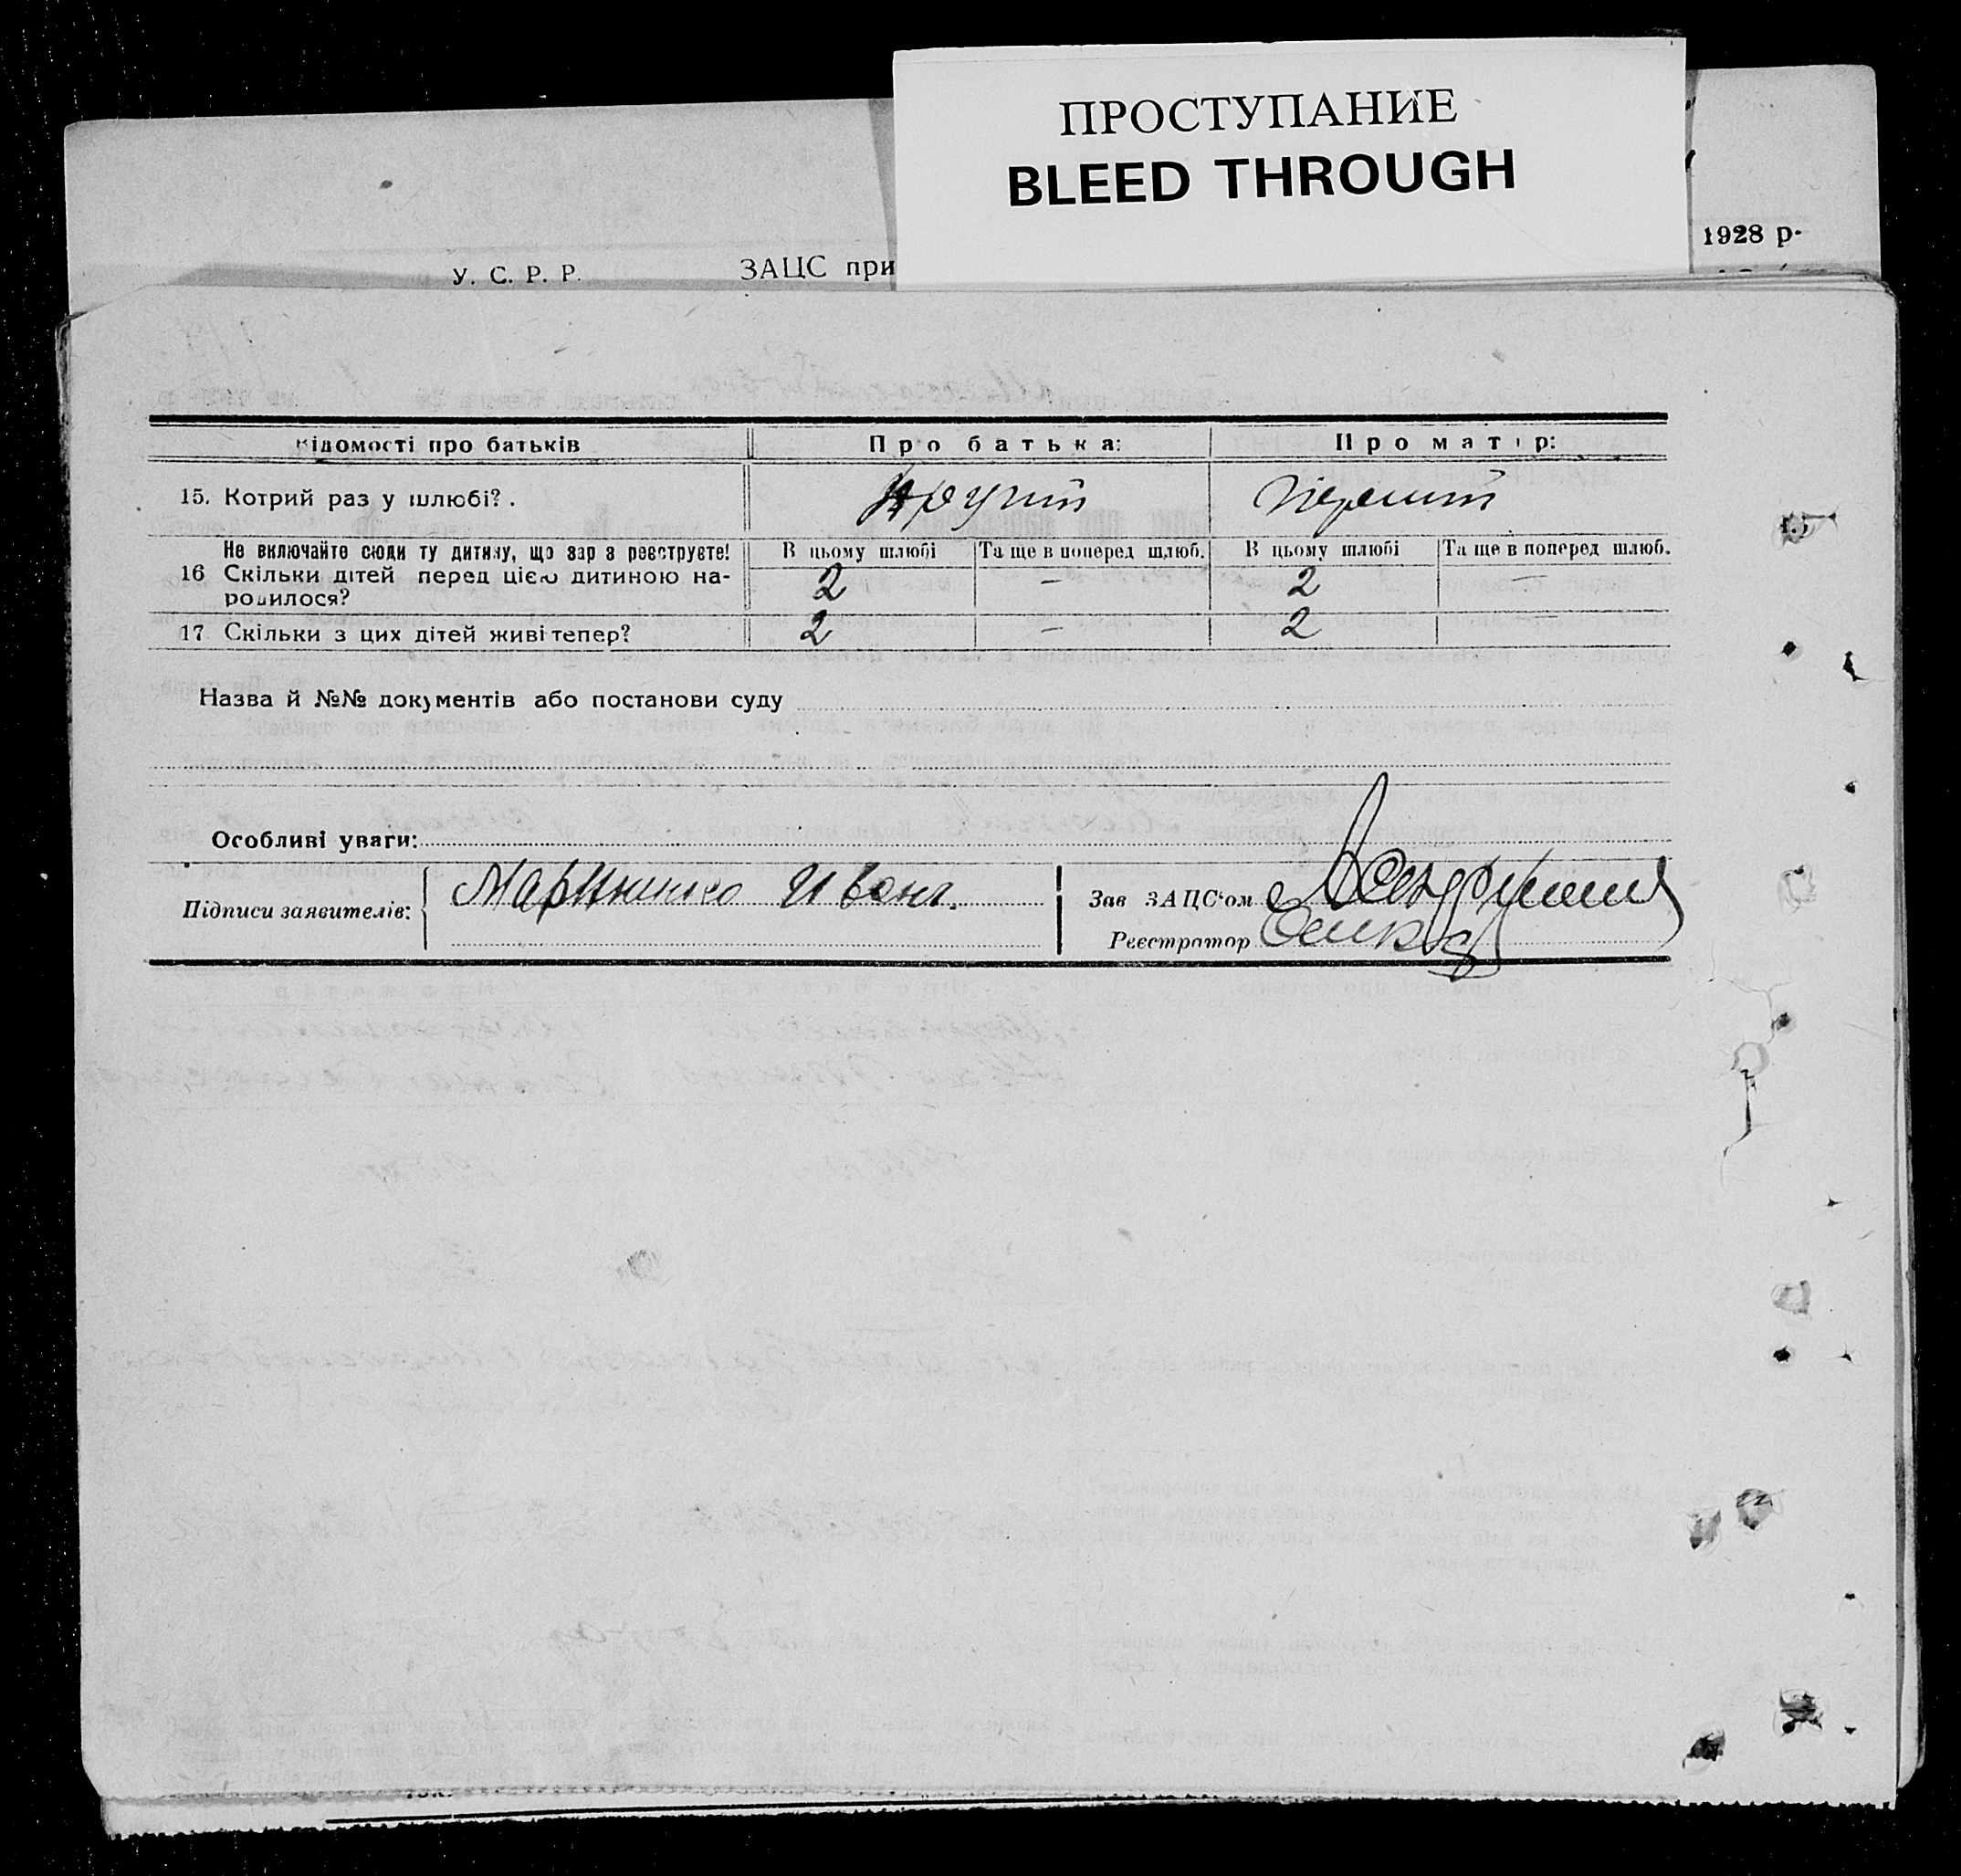 ПРОСТУПАНИЕ
BLEED THROUGH
1928 р.
У. С. Р. Р. ЗАЦС при
відомості про батьків Про батька: Про матір:
15. Котрий раз у шлюбі? . другий перший
Не включайте сюди ту дитину, що зар з реєструєте! В цьому шлюбі Та ще в поперед шлюб. В цьому шлюбі Та ще в поперед шлюб.
16 Скільки дітей перед цією дитиною на- 2 — 2 —
родилося?
17 Скільки з цих дітей живі тепер? 2 — 2 —
Назва й №№ документів або постанови суду
Особливі уваги:
Підписи заявителів: Иван. Зав ЗАЦС'ом
Реєстратор